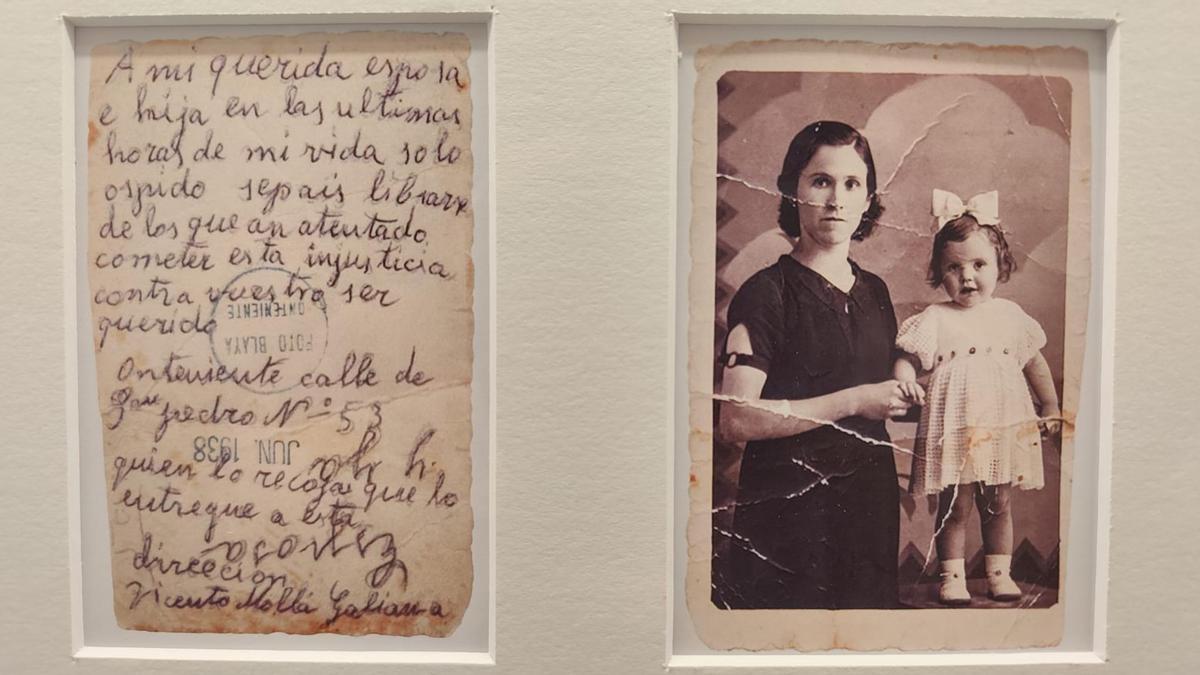 A mi querida esposa
e hija en las ultimas
horas de mi vida solo
ospido sepais librarx
de los que an atentado
cometer esta injusticia
contra vuestro ser
querido
ONTENIENTE
FOTO BLAYA
Onteniente calle de
San pedro Nº 53
JUN. 1938
quien lo recoja que lo
entregue a esta
direccion
Vicento Mollá Galiana